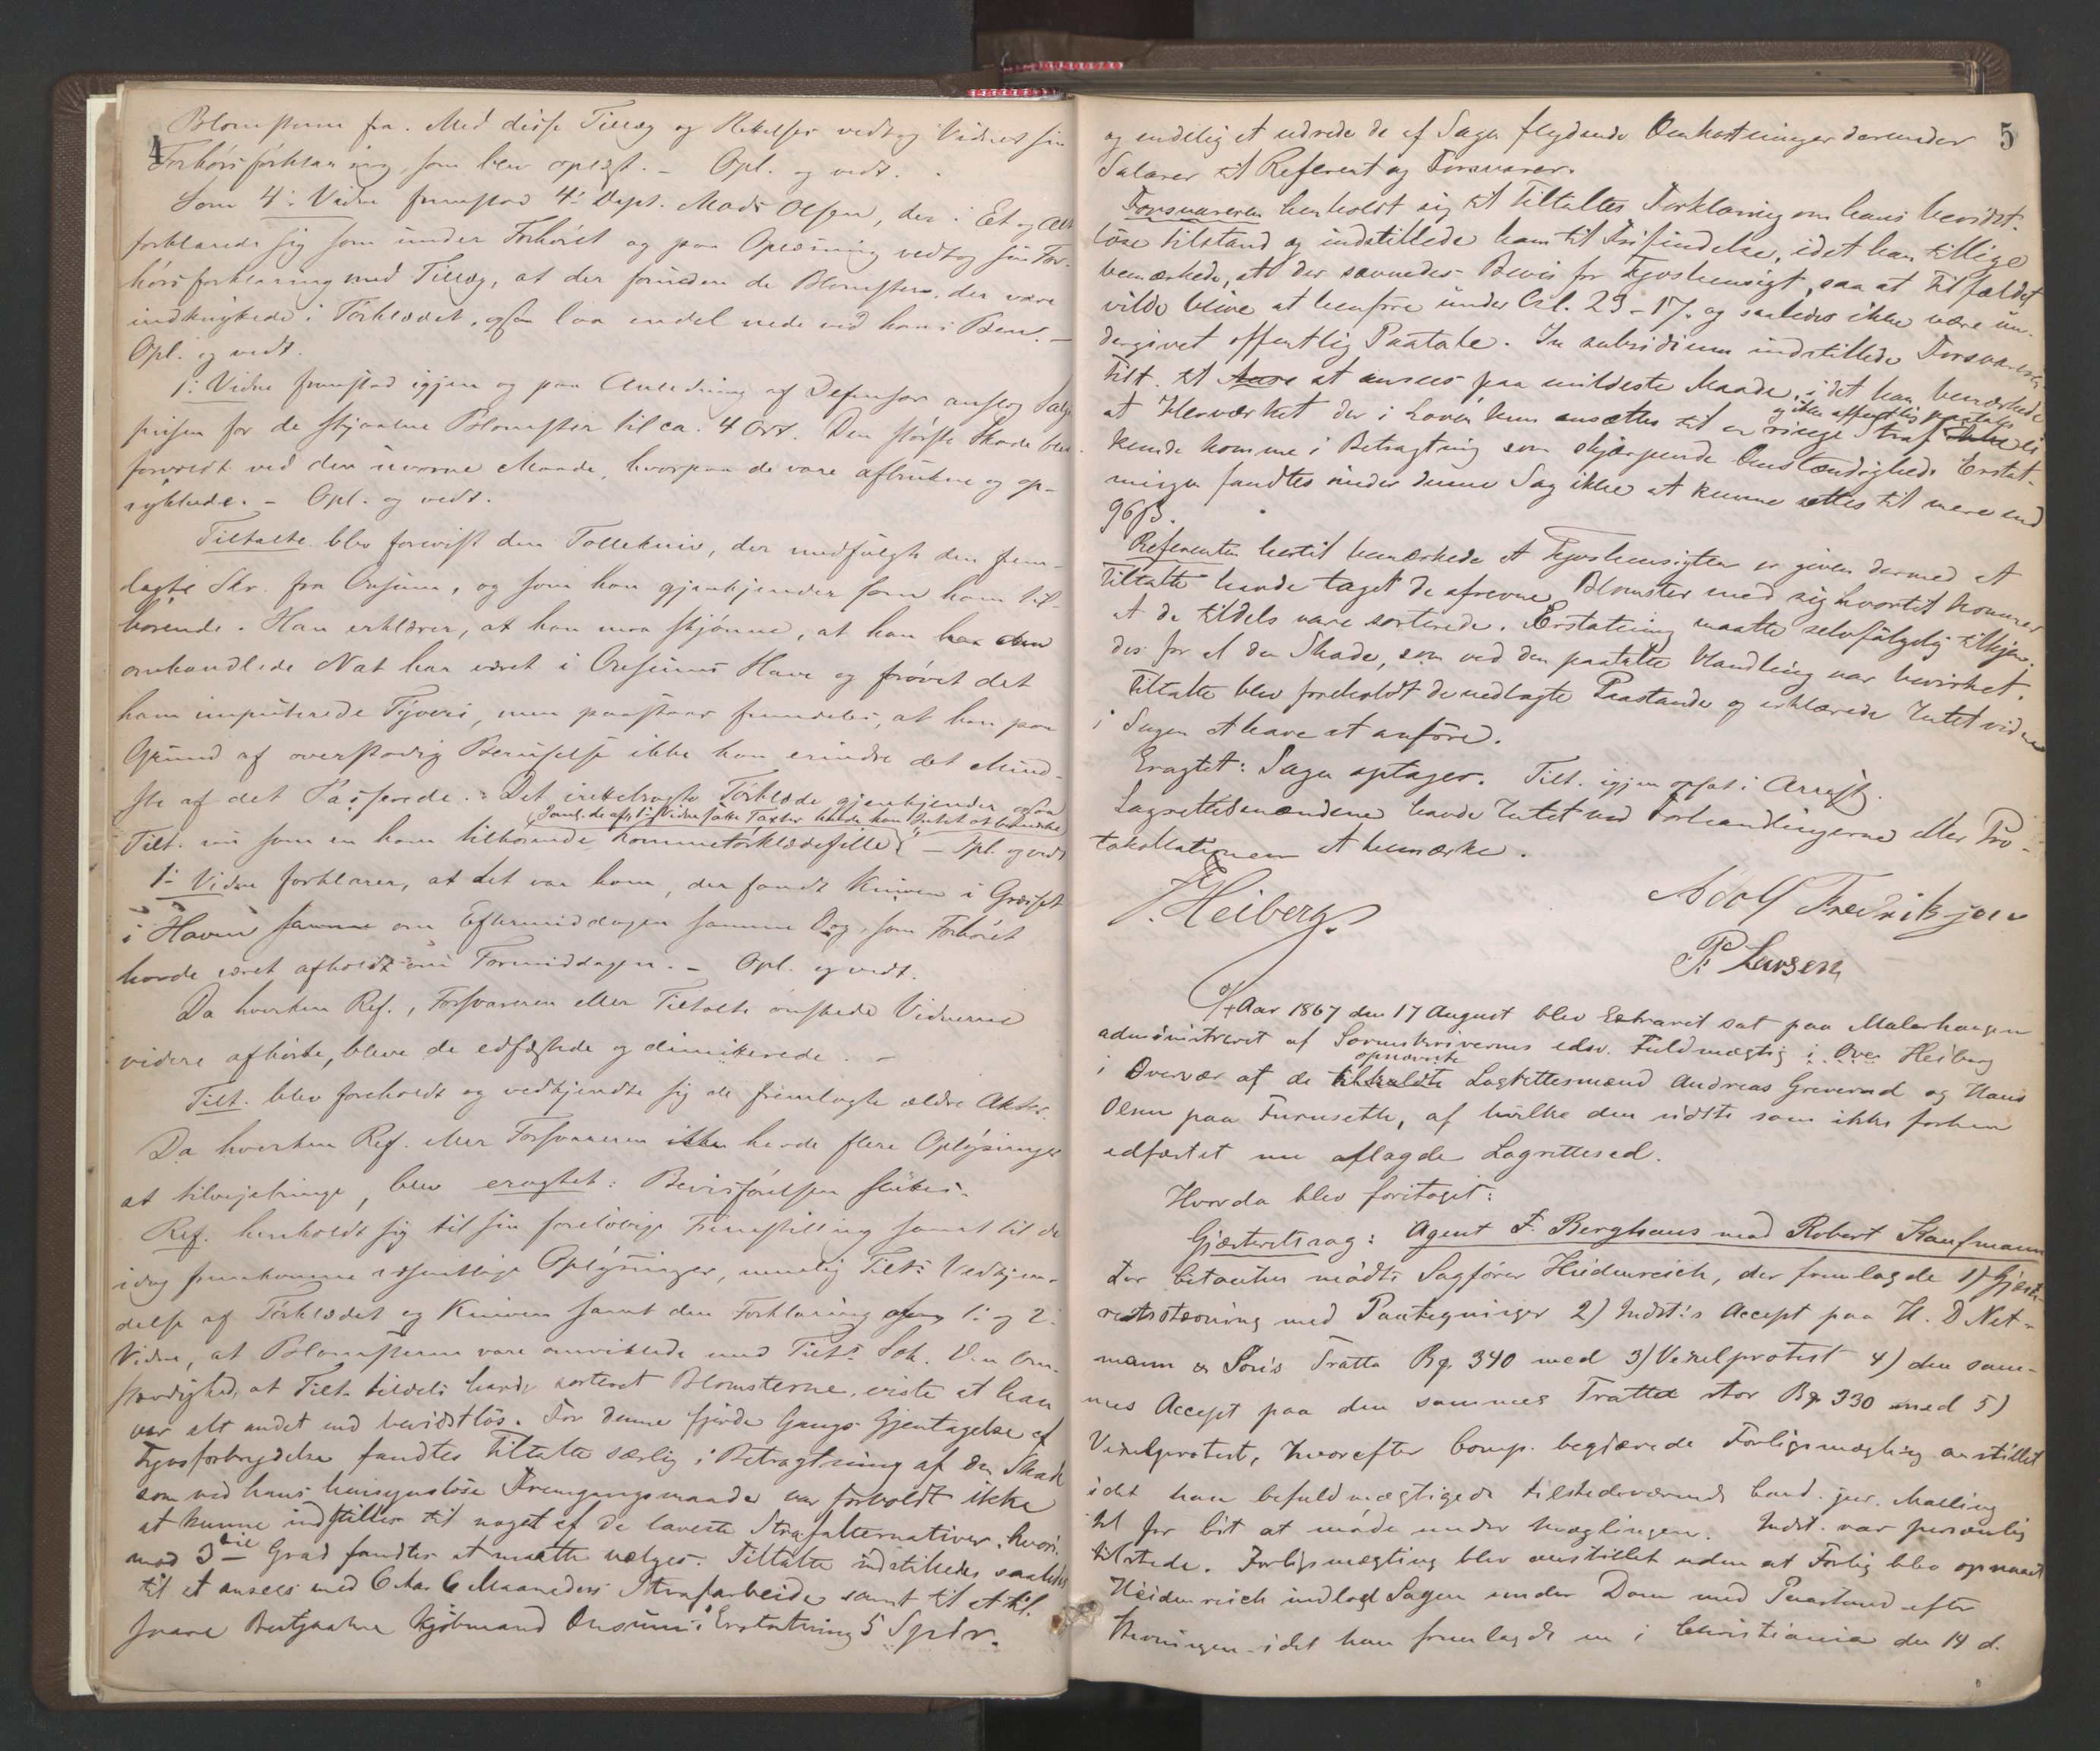 4
Blomsterne fra. Med disse Tillæg og Rettelser vedtog Vidnet sin
Forhörsforklaring, som blev oplæst. - Opl. og vedt.
Som 4: Vidne fremstod 4: Dept. Mads Olsen, der i Et og Alt
forklarede sig som under Forhöret og paa Oplæsning vedtog sin For-
hörsforklaring med Tillæg, at der foruden de Blomster, der vare
indknyttede i Törklædet, ogsaa laa endel nede ved hans Ben. -
Opl. og vedt.
1: Vidne fremstod igjen og paa Anledning af Defensor anslog Salgs
prisen for de stjaalne Blomster til ca. 4 Ort. Den störste Skade blev
forvoldt ved den uvorne Maade, hvorpaa de vare afbrukne og op-
rykkede. - Opl. og vedt.
Tiltalte blev forevist den Tollekniv, der medfulgte den frem-
lagte Skr. fra Onsum, og som han gjenkjender som ham til-
hörende. Han erklærer, at han maa skjönne, at han den
omhandlede Nat har været i Onsums Have og prövet det
ham imputerede Tyveri, men paastaar fremdeles, at han paa
Grund af overstadig Beruselse ikke kan erindre det Mind-
ste af det Passerede. - Det irettebragte Törklæde gjenkjender ogsaa
Tilt. nu som en ham tilhörende Lommetörklædefille - Opl. og vedt
(Imod de af 1: Vidne satte Taxter havde han Intet at bemærke)
1: Vidne forklarer, at det var ham, der fandt Kniven i Græsset
i Haven om Eftermiddagen samme Dag, som Forhöret
havde været afholdt om Formiddagen. - Opl. og vedt.
Da hverken Ref., Forsvareren eller Tiltalte önskede Vidnerne
videre afhörte, bleve de edfæstede og dimitterede. -
Tilt. blev foreholdt og vedkjendte sig de fremlagte ældre Akter.
Da hverken Ref. eller Forsvareren havde flere Oplysninger
at tilveiebringe, blev eragtet: Bevisförelsen sluttes.
Ref. henholdt sig til sin foreløbige Fremstilling samt til de
idag fremkomne væsentlige Oplysninger, nemlig Tilts Vedkjen-
delse af Törklædet og Kniven samt den Forklaring af 1: og 2:
Vidne, at Blomsterne vare omviklede med Tilts Tök. Den Om-
stændighed, at Tilt. tildels havde sorteret Blomsterne, viste at han
var alt andet end bevidstlös. For denne fjerde Gangs Gjentagelse af
Tyvsforbrydelse fandtes Tiltalte særlig i Betragtning af den Skade
som ved hans hensynslöse Fremgangsmaade var forvoldt ikke
at kunne indstilles til noget af de laveste Strafalternativer, hvori-
mod 3die Grad fandtes at maatte vælges. Tiltalte indstilledes saaledes
til at ansees med 6 Aar 6 Maaneders Strafarbeide samt til at til-
svare Bestjaalne Kjöbmand Onsum i Erstatning 5 Spdlr.
5
og endelig at udrede de af Sagen flydende Omkostninger derunder
Salærer til Referent og Forsvarer.
Forsvareren henholdt sig til Tiltaltes Forklaring om hans bevidst-
löse Tilstand og indstillede ham til Frifindelse, idet han tillige
bemærkede, at der savnedes Bevis for Tyvshensigt, saa at Tilfældet
vilde blive at henföre under Crl. 23-17. og saaledes ikke være un-
dergivet offentlig Paatale. In subsidium indstillede Forsvareren
Tilt. til at ansees paa mildeste Maade, idet han bemærkede
at Hærværket der i Loven kun ansættes til en ringe Straf og ikke offentlig paatales ei
kunde komme i Betragtning som skjærpende Omstændighed. Erstat-
ningen fandtes under denne Sag ikke at kunne sættes til mere end
96 ß.
Referenten hertil bemærkede at Tyvshensigten er given dermed at
Tiltalte havde taget de afrevne Blomster med sig hvortil kommer
at de tildels vare sorterede. Erstatning maatte selvfölgelig tilkjen-
des for al den Skade, som ved den paatalte Handling var bevirket.
Tiltalte blev foreholdt de nedlagte Paastande og erklærede Intet videre
i Sagen at have at anföre.
Eragtet: Sagen optages. Tilt. igjen opsat i Arrest.
Lagrettesmændene havde Intet ved Forhandlingerne eller Pro-
tokollationen at bemærke.
Heiberg.
Adolf Fredriksen
P. Larsen
Aar 1867 den 17 August blev Extraret sat paa Malerhaugen
administreret af Sorenskriverens edsv. Fuldmægtig i Heiberg
i Overvær af de opnævnte Lagrettesmænd Andreas Greverud og Hans
Olsen paa Furuseth, af hvilke den sidste som ikke forhen
edfæstet nu aflagde Lagrettesed.
Hvorda blev foretaget:
Gjæsteretssag: Agent F. Berghaus mod Robert Kaufmann
For Citanten mödte Sagförer Heidenreich, der fremlagde 1) Gjæste-
retsstævning med Paategninger 2) Indst:s Accept paa H. D Net-
mann & Söns Tratta Bg. 340 med 3) Vexelprotest 4) den sam-
mes Accept paa den sammes Tratta stor Bg. 330 med 5)
Vexelprotest, hvorefter Comp. begjærede Forligsmægling anstillet
idet han befuldmægtigede tilstedeværende Cand. jur. Malling
til for Cit at møde under Mæglingen. Indst. var personlig
tilstede. Forligsmægling blev anstillet uden at Forlig blev opnaaet
Heidenreich indlod Sagen under Dom med Paastand efter
Stevningen idet han fremlagde en i Christiania den 14 d.